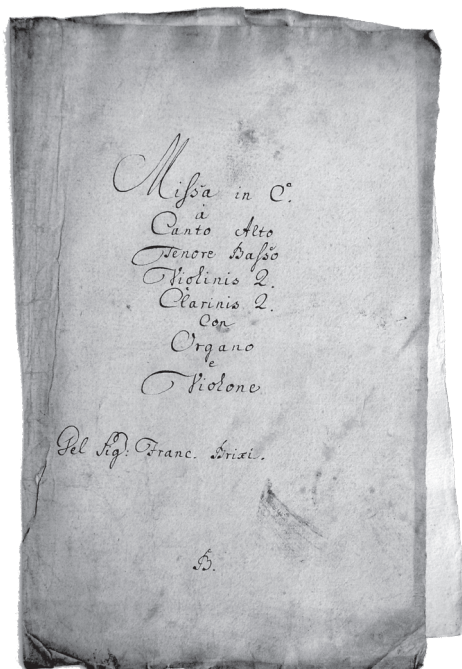 Missa in C.
à
Canto Alto
Tenore Basso
Violinis 2.
Clarinis 2.
Con
Organo
e
Violone
Del Sig: Franc. Brixi.
B.